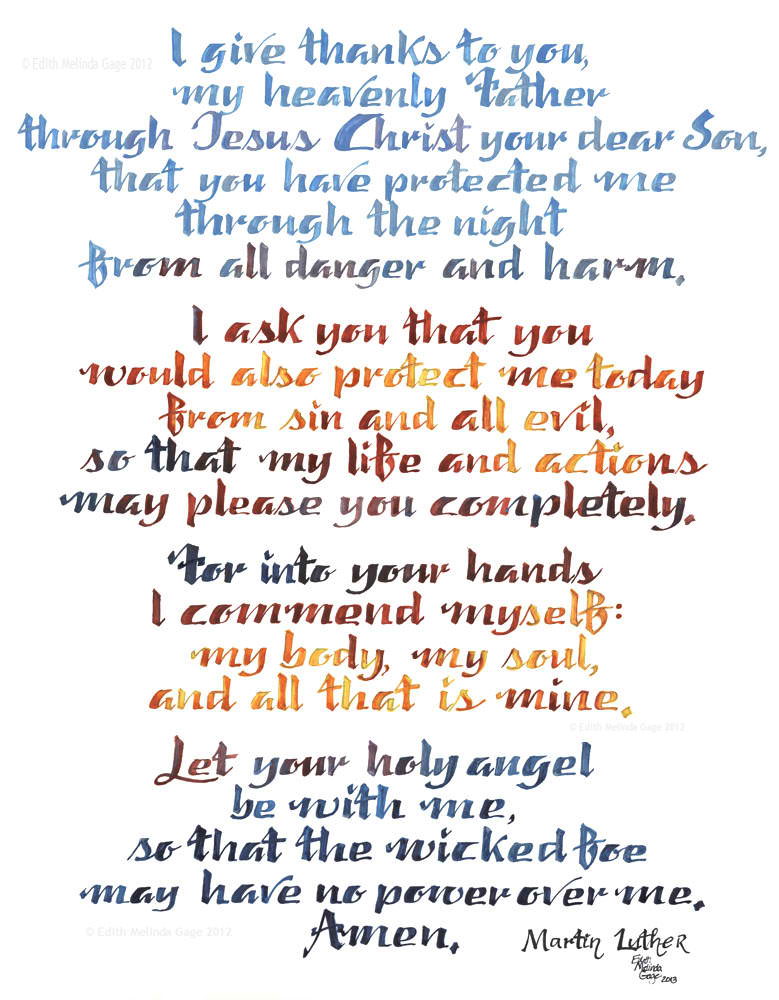 I give thanks to you,
© Edith Melinda Gage 2012
my heavenly Father
through Jesus Christ your dear Son,
that you have protected me
through the night
from all danger and harm.
I ask you that you
would also protect me today
from sin and all evil,
so that my life and actions
may please you completely.
For into your hands
I commend myself:
my body, my soul,
and all that is mine.
© Edith Melinda Gage 2012
Let your holy angel
be with me,
so that the wicked foe
may have no power over me.
Amen.
© Edith Melinda Gage 2012
Martin Luther
Edith
Melinda
Gage 2013